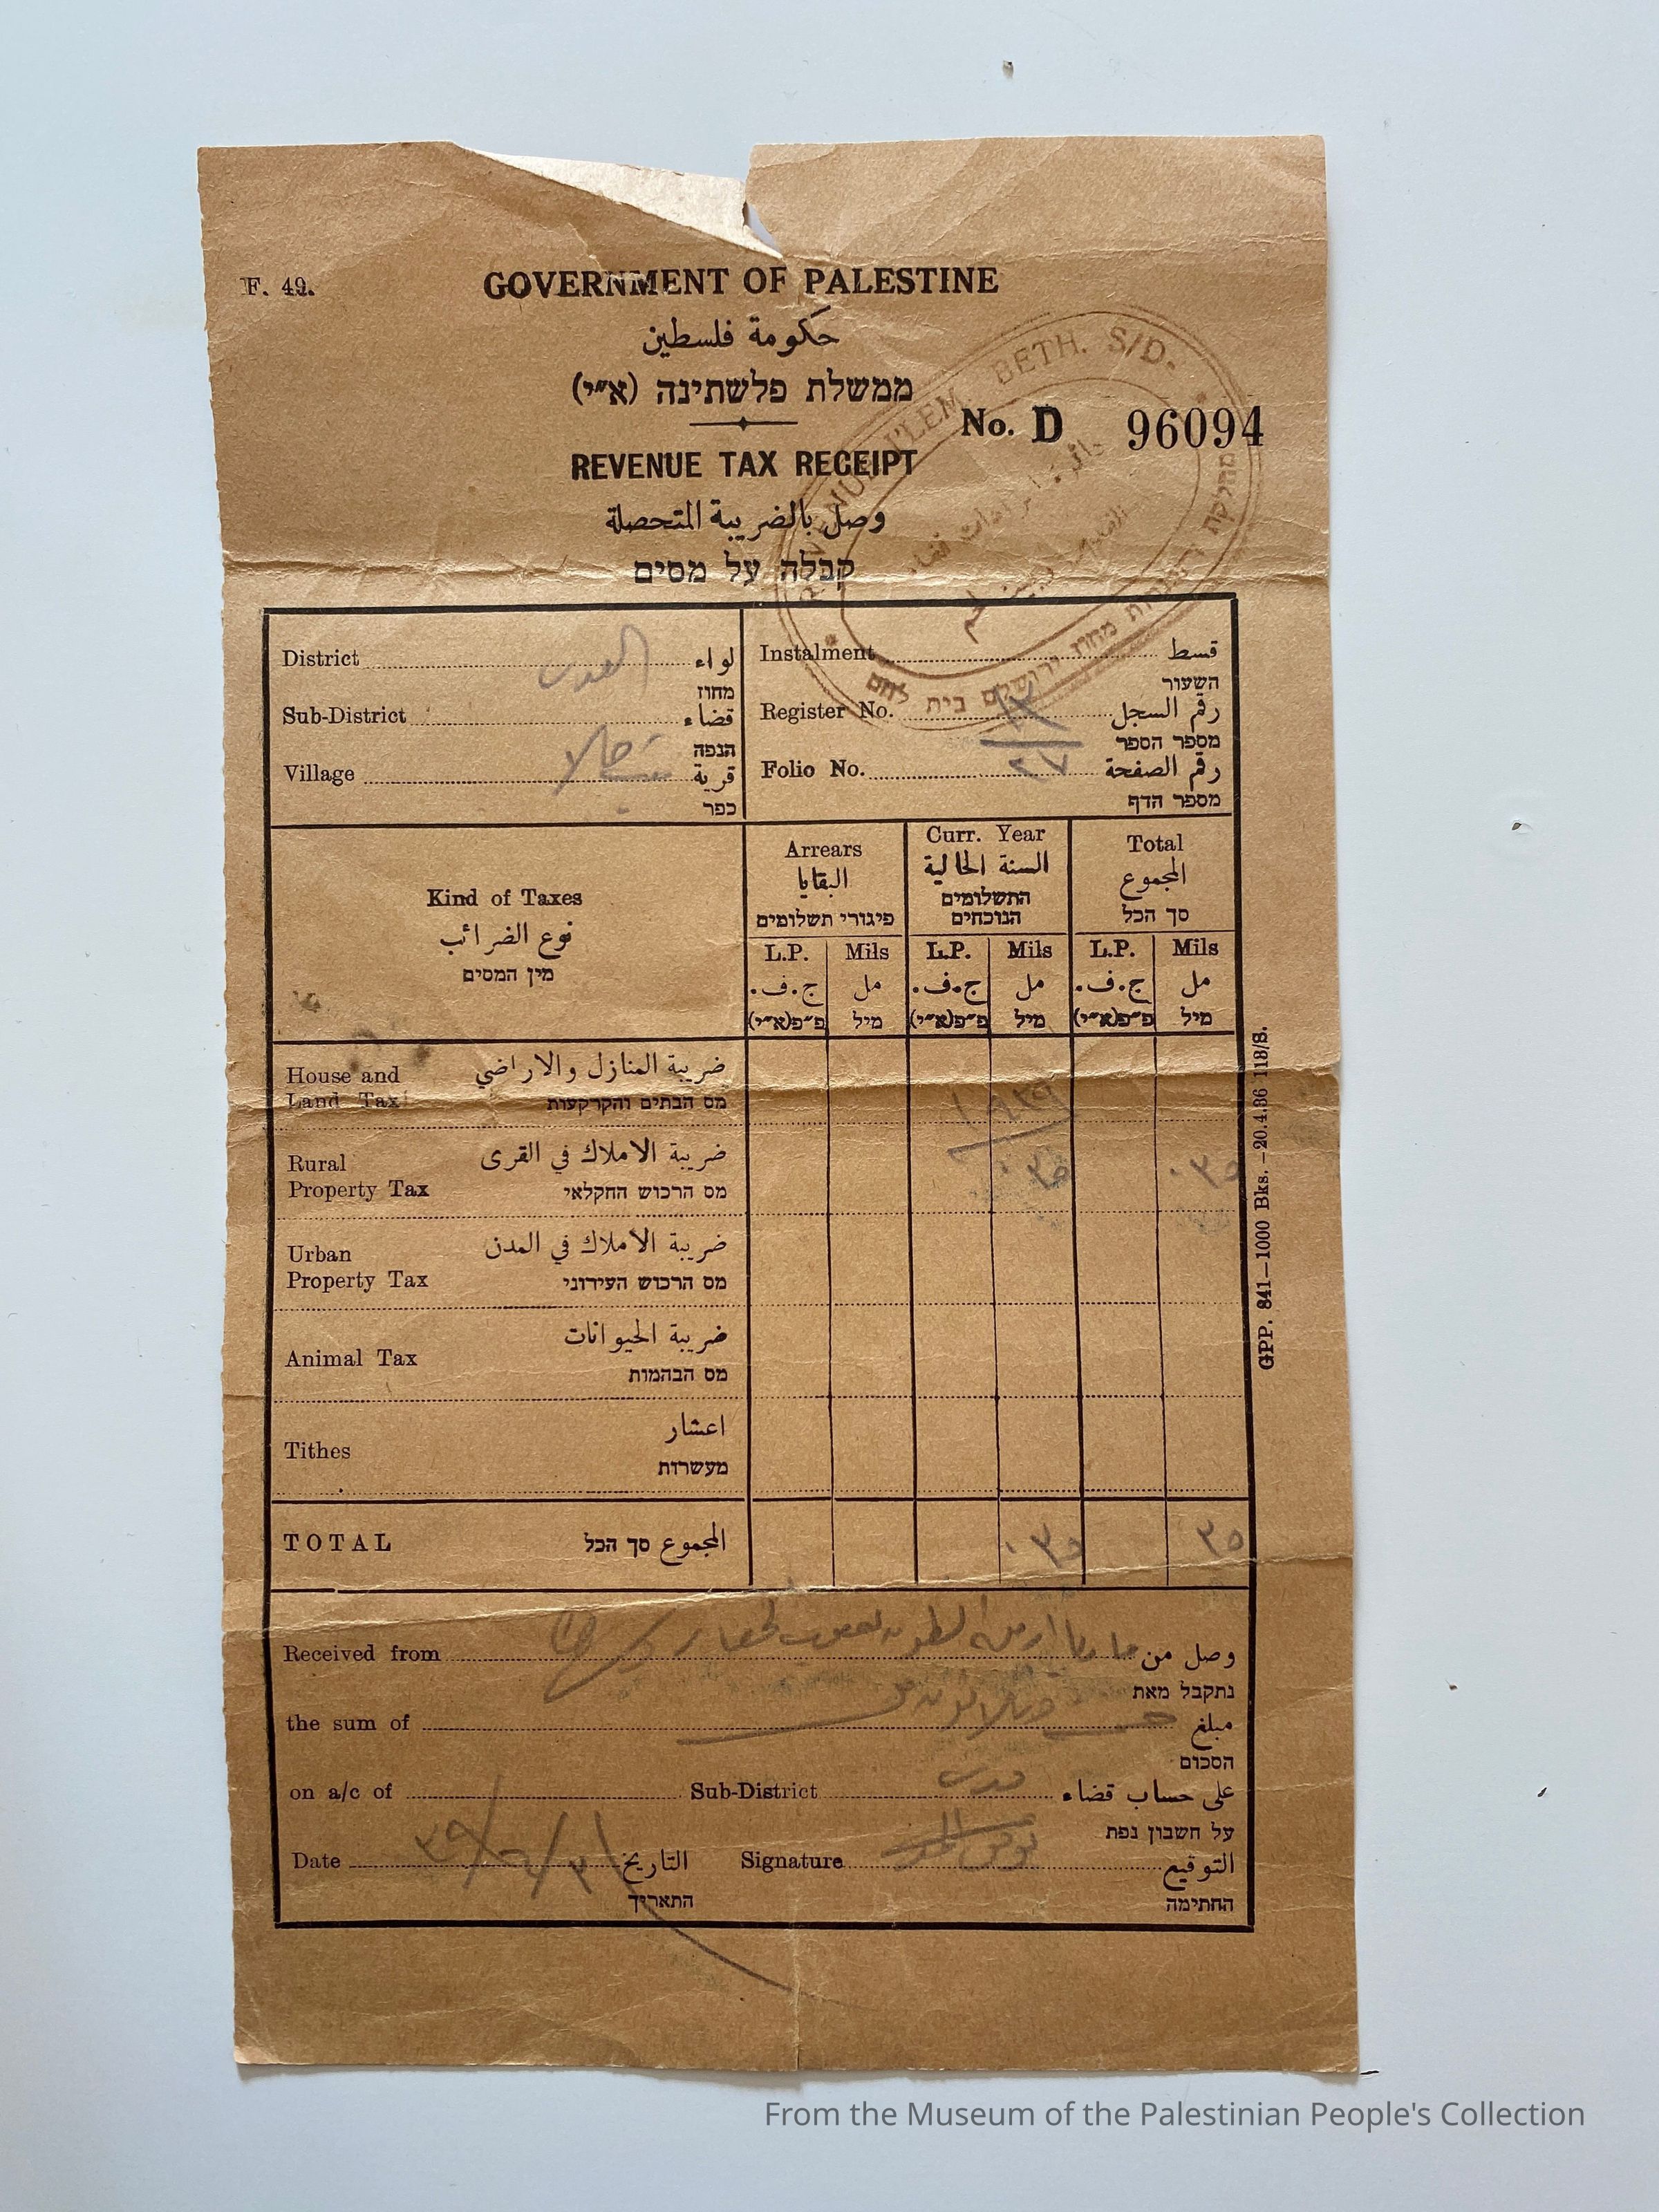 F. 49.
GOVERNMENT OF PALESTINE
حكومة فلسطين
ממשלת פלשתינה (א״י)
No. D 96094
REVENUE TAX RECEIPT
وصل بالضريبة المتحصلة
קבלה על מסים
REVENUE J'LEM. BETH. S/D.
دائرة ايرادات قضاء
القدس وبيت لحم
מחלקת מחוז ירושלם בית לחם
District القدس لواء
מחוז
Sub-District قضاء
הנפה
Village بيت جالا قرية
כפר
Instalment قسط
השעור
Register No. رقم السجل
מספר הספר
Folio No. ٢٧ رقم الصفحة
מספר הדף
Kind of Taxes
نوع الضرائب
מין המסים
Arrears
البقايا
פיגורי תשלומים
Curr. Year
السنة الحالية
התשלומים
הנוכחים
Total
المجموع
סך הכל
L.P. Mils L.P. Mils L.P. Mils
ج.ف. مل ج.ف. مل ج.ف. مل
פ״פ(א״י) מיל פ״פ(א״י) מיל פ״פ(א״י) מיל
House and ضريبة المنازل والاراضي
Land Tax מס הבתים והקרקעות
١٩٣٩
Rural ضريبة الاملاك في القرى
Property Tax מס הרכוש החקלאי
٠٣٥ ٠٣٥
Urban ضريبة الاملاك في المدن
Property Tax מס הרכוש העירוני
Animal Tax ضريبة الحيوانات
מס הבהמות
Tithes اعشار
מעשרות
TOTAL המجموع סך הכל ٠٣٥ ٣٥
Received from وصل من
נתקבל מאת
the sum of مبلغ
הסכום
on a/c of Sub-District قدس على حساب قضاء
על חשבון נפת
Date التاريخ Signature التوقيع
התאריך החתימה
GPP. 841—1000 Bks. —20.4.36 118/S.
From the Museum of the Palestinian People's Collection